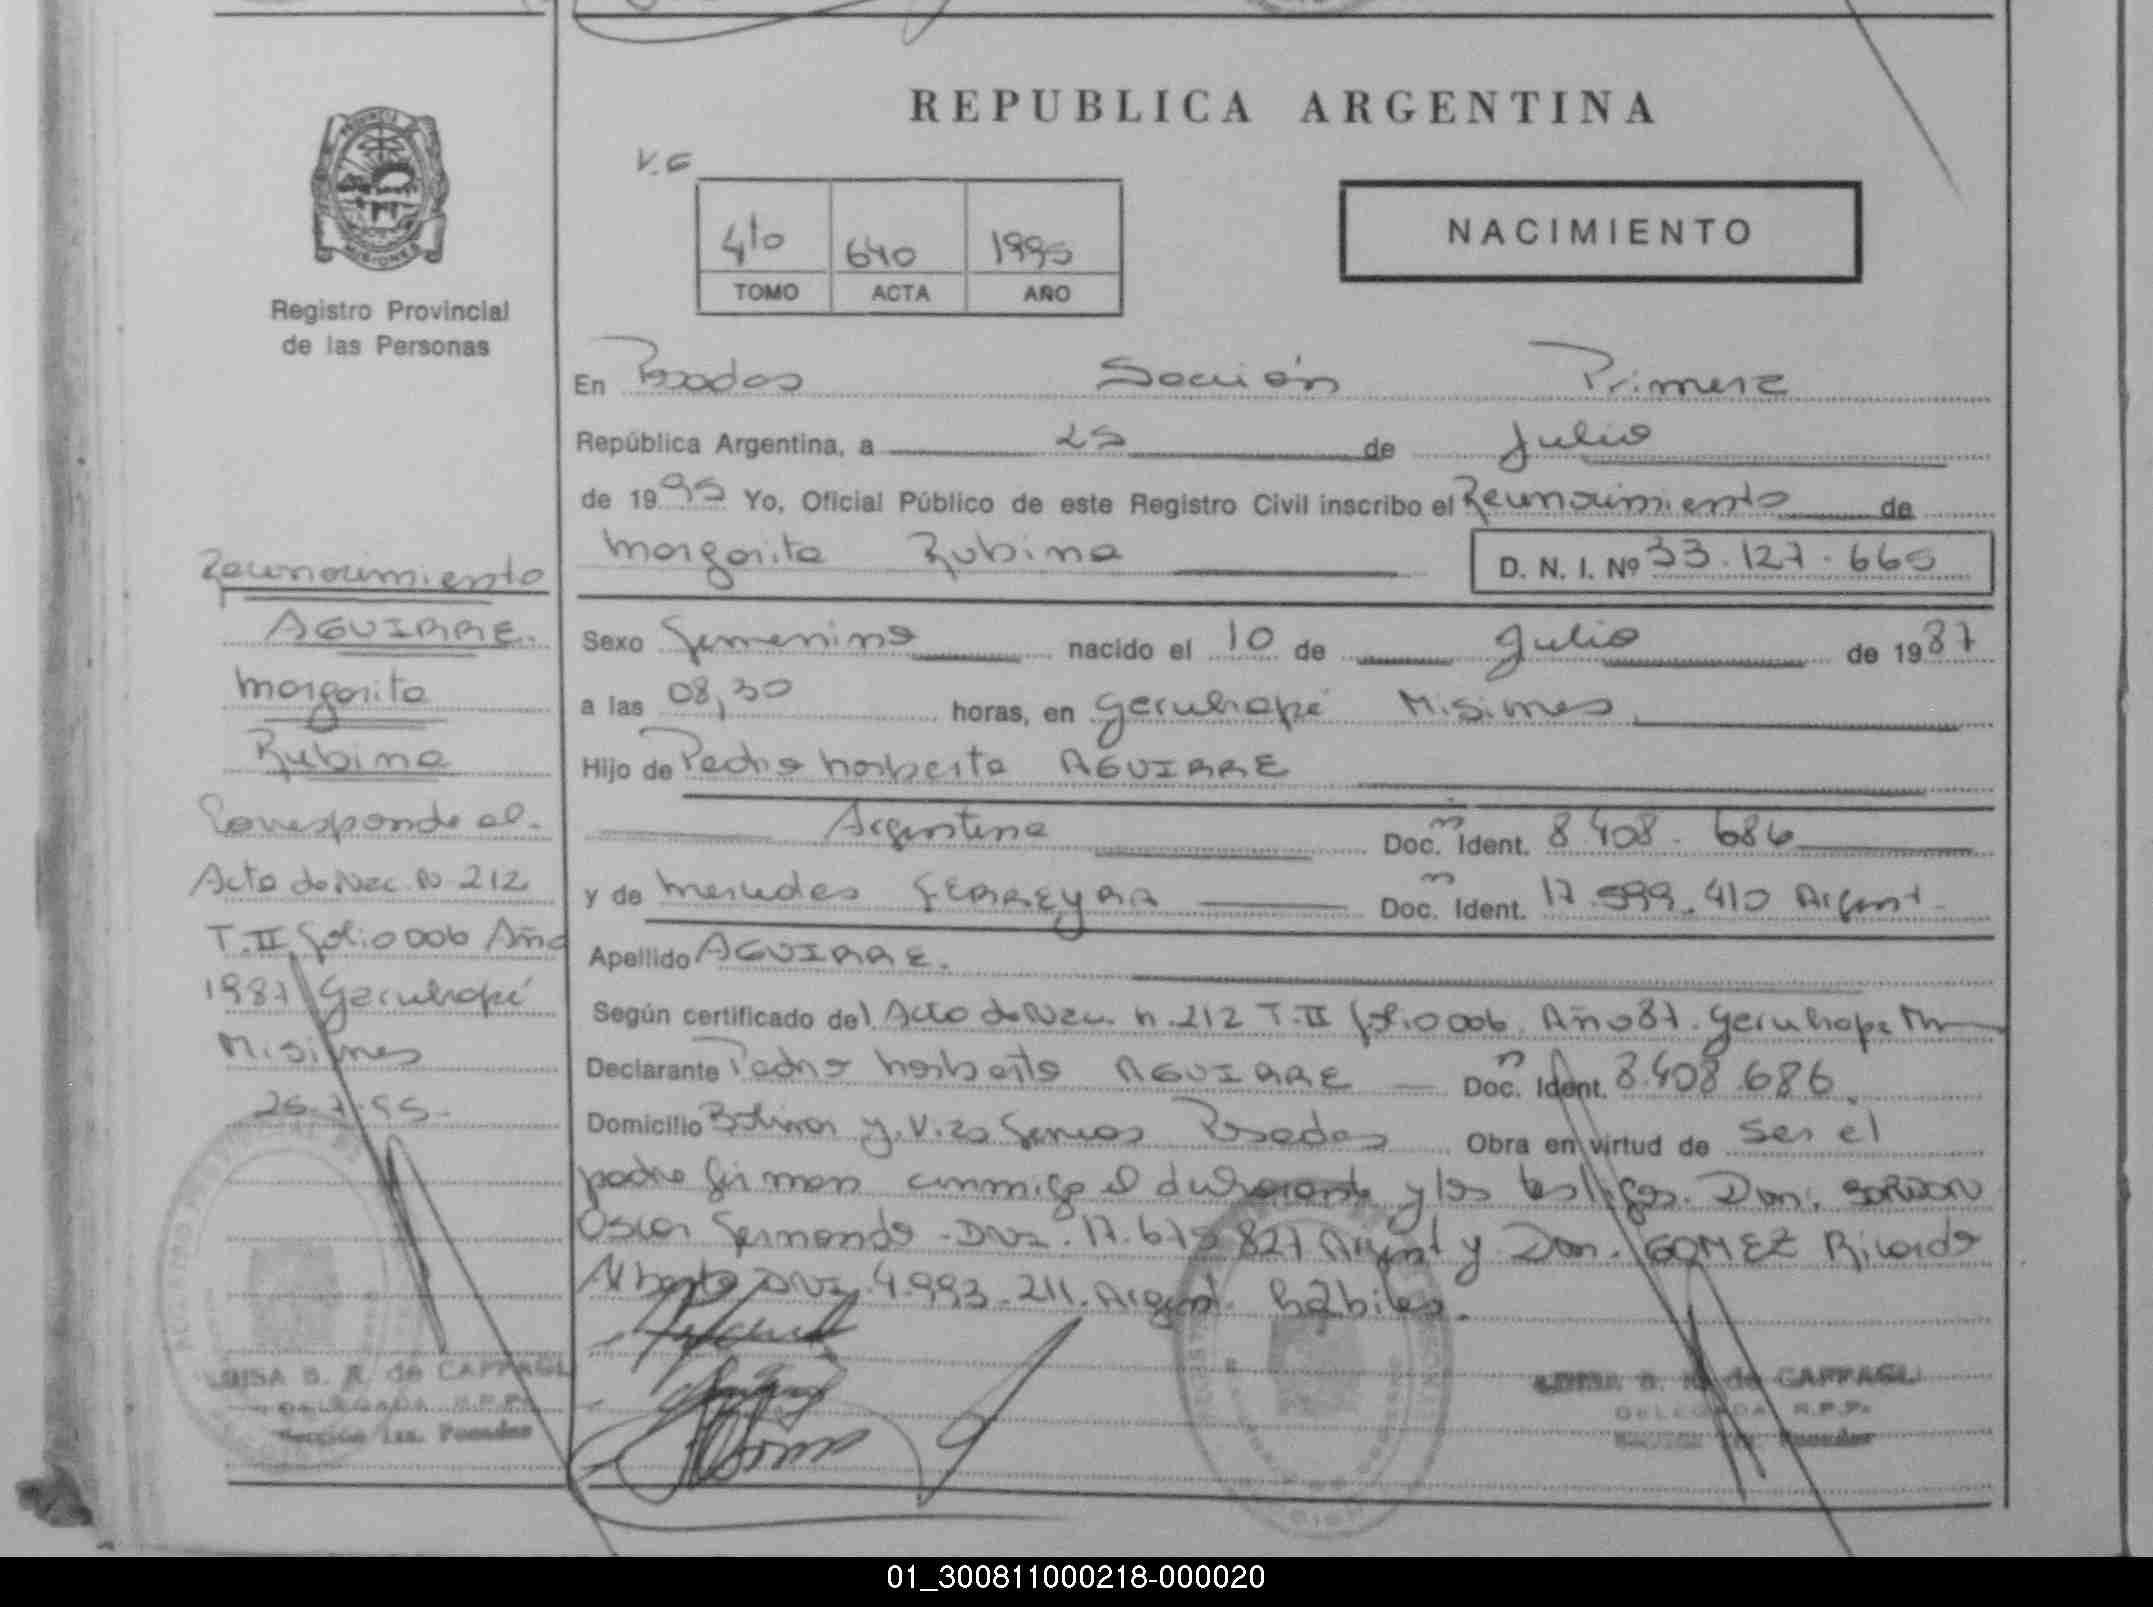 REPUBLICA ARGENTINA
V.G
410 640 1995
TOMO ACTA AÑO
NACIMIENTO
PROVINCIA
MISIONES
Registro Provincial
de las Personas
En Posadas Sección Primera
República Argentina, a 25 de Julio
de 1995 Yo, Oficial Público de este Registro Civil inscribo el Reconocimiento de
Margarita Rubina D. N. I. Nº 33.127.665
Sexo Femenino nacido el 10 de Julio de 1987
a las 08,30 horas, en Garuhapé Misiones
Hijo de Pedro Norberto AGUIRRE
Argentina Doc. Ident. 8.408.686
y de Mercedes FERREYRA Doc. Ident. 17.599.410 Argent.
Apellido AGUIRRE.
Según certificado del Acta de Nac. n. 212 T. II folio 006 Año 87. Garuhape
Declarante Pedro Norberto AGUIRRE Doc. Ident. 8.408.686.
Domicilio Bolivar y Posadas Obra en virtud de ser el
padre firman conmigo el declarante y los testigos. Don:
Oscar Fernando DNI. 17.675.827 Argent y Don. GOMEZ Ricardo
Alberto DNI. 4.993.211. Argent. hábiles.
Reconocimiento
AGUIRRE.
Margarita
Rubina
Corresponde al.
Acta de Nac. N 212
T. II folio 006 Año
1987 Garuhapé
Misiones
LUISA B. R. de CAFFAGLI
DELEGADA R.P.P.
Sección 1ra. Posadas
B. R. de CAFFAGLI
DELEGADA R.P.P.
Posadas
01_300811000218-000020